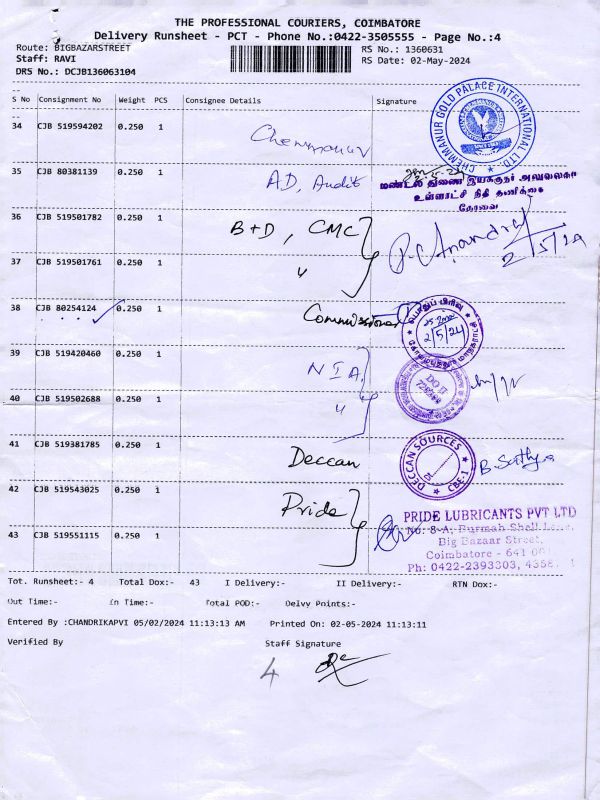 THE PROFESSIONAL COURIERS, COIMBATORE
Delivery Runsheet - PCT - Phone No.:0422-3505555 - Page No.:4
Route: BIGBAZARSTREET
RS No.: 1360631
Staff: RAVI
RS Date: 02-May-2024
DRS No.: DCJB136063104
S No Consignment No Weight PCS Consignee Details Signature
CHEMMANUR GOLD PALACE INTERNATIONAL LTD.
34 CJB 519594202 0.250 1 Chemmanur
35 CJB 80381139 0.250 1 AD, Audit
மண்டல துணை இயக்குநர் அலுவலகம்
உள்ளாட்சி நிதி தணிக்கை
கோவை
36 CJB 519501782 0.250 1 B+D, CMC
2/5/24
37 CJB 519501761 0.250 1 "
38 CJB 80254124 0.250 1 Commissioner
2/5/24
39 CJB 519420460 0.250 1 NIA
40 CJB 519502688 0.250 1 "
41 CJB 519381785 0.250 1 Deccan
DECCAN SOURCES CBE-1
B. Sathya
42 CJB 519543025 0.250 1 Pride
PRIDE LUBRICANTS PVT LTD
No. 8-A, Burmah Shell Lane,
Big Bazaar Street,
43 CJB 519551115 0.250 1
Coimbatore - 641 001
Ph: 0422-2393303, 4358
Tot. Runsheet:- 4 Total Dox:- 43 I Delivery:- II Delivery:- RTN Dox:-
Out Time:- In Time:- Total POD:- Delvy Points:-
Entered By :CHANDRIKAPVI 05/02/2024 11:13:13 AM Printed On: 02-05-2024 11:13:11
Verified By Staff Signature
4